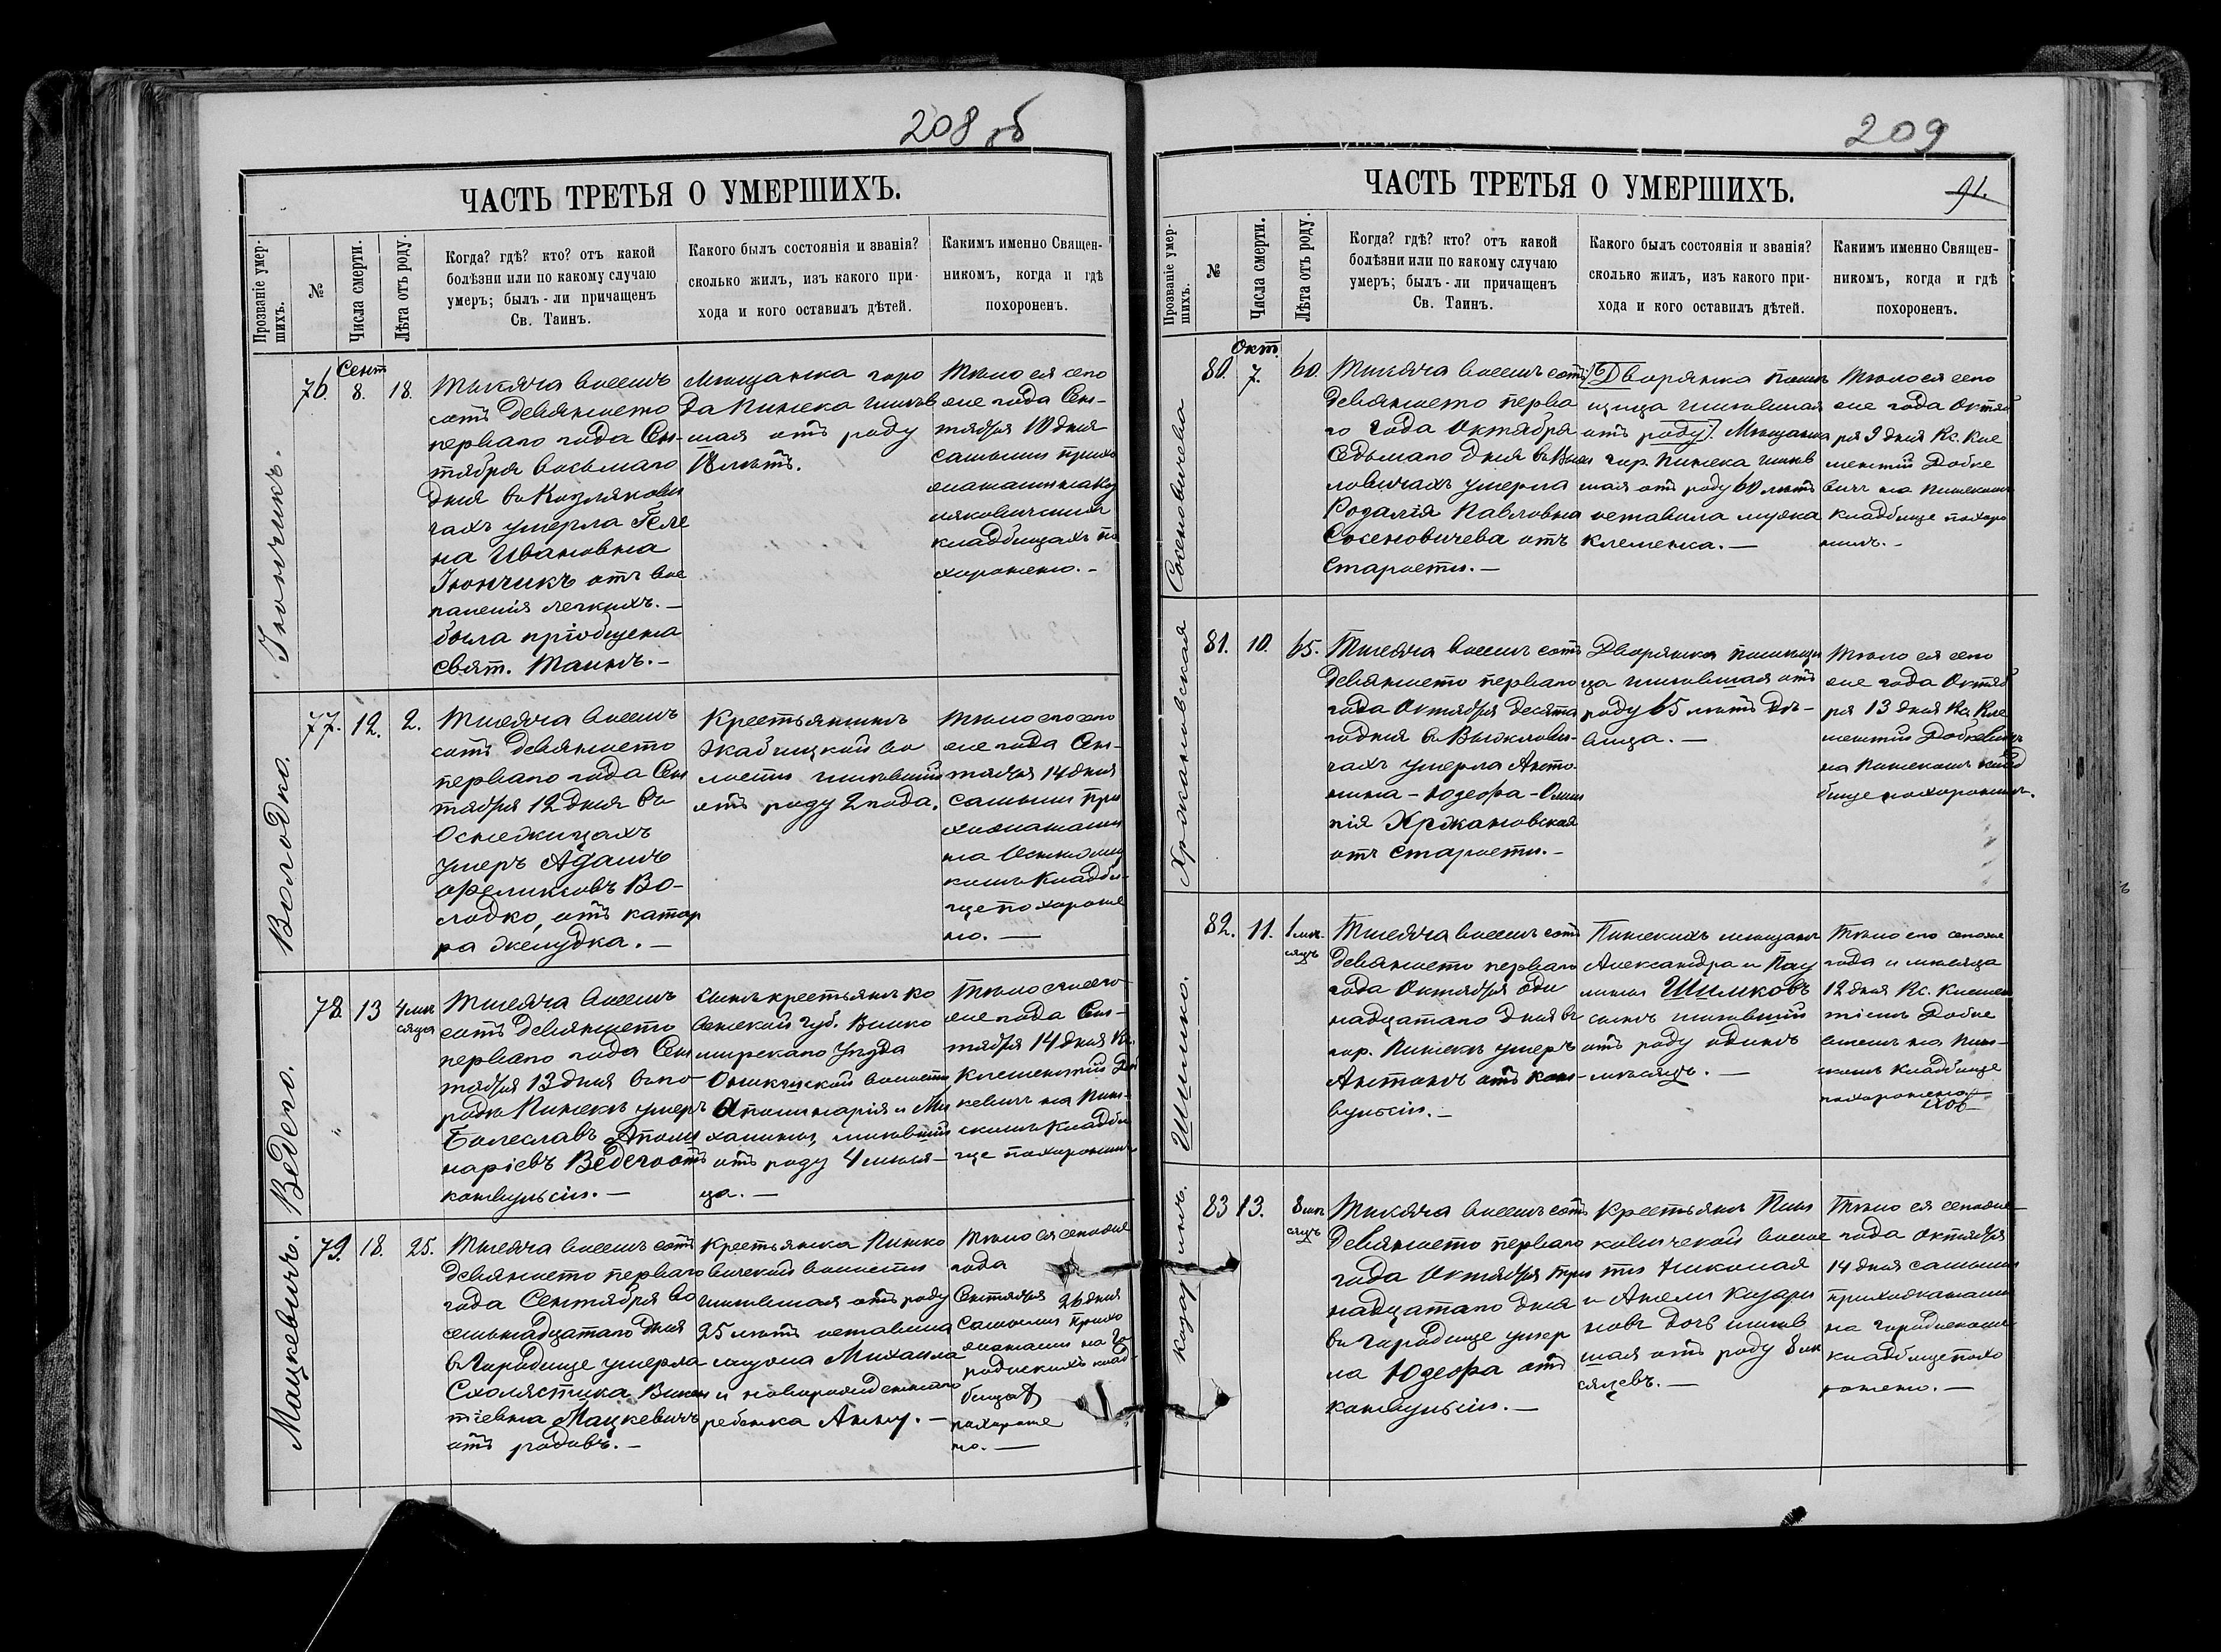 208 об
ЧАСТЬ ТРЕТЬЯ О УМЕРШИХЪ.
Прозваніе умер-
шихъ.
№
Числа смерти.
Лѣта отъ роду.
Когда? гдѣ? кто? отъ какой
болѣзни или по какому случаю
умеръ; былъ-ли причащенъ
Св. Таинъ.
Какого былъ состоянія и званія?
сколько жилъ, изъ какого при-
хода и кого оставилъ дѣтей.
Какимъ именно Священ-
никомъ, когда и гдѣ
похороненъ.
76.
Сент
8.
18.
Тысяча восемь
сотъ девяносто
перваго года Сен-
тября восьмаго
дня въ Козлякови
чахъ умерла Геле
на Ивановна
отъ вос
паленія легкихъ. —
была пріобщена
свят. Таинъ. —
Мѣщанка горо
да Пинска жив
шая отъ роду
18 лѣтъ.
Тѣло ея сего
же года Сен-
тября 10 дня
самыми прихо
жанами на Коз
ляковичскихъ
кладбищахъ по
хоронено. —
Володко.
77.
12.
2.
Тысяча восемь
сотъ девяносто
перваго года Сен
тября 12 дня въ
Оснежицахъ
умеръ Адамъ
Феликсовъ Во-
лодко, отъ катар
ра желудка. —
Крестьянинъ
Жабчицкой во
лости жившій
отъ роду 2 года.
Тѣло его сего
же года Сен-
тября 14 дня
самыми при
хожанами
на
комъ кладби-
ще похороне
но. —
Ведего.
78.
13
4 мѣ
сяца
Тысяча восемь
сотъ девяносто
перваго года Сен
тября 13 дня въ го
родѣ Пинскѣ умеръ
Болеславъ Аполи
наріевъ Ведего отъ
конвульсіи. —
Сынъ крестьянъ Ко
венской губ. Вилко
мирскаго уѣзда
Оникштской волости
Аполинарія и Ми
халины, жившій
отъ роду 4 мѣся-
ца. —
Тѣло его сего
же года Сен-
тября 14 дня Кс.
Клементій Доб
кевичъ на Пин-
скомъ кладби
ще похоронилъ
Мацкевичъ.
79.
18.
25.
Тысяча восемь сотъ
девяносто перваго
года Сентября во
семьнадцатаго дня
въ Городище умерла
Схолястика Викен
тіевна Мацкевичъ
отъ родовъ. —
Крестьянка Пинко
вичской волости
жившая отъ роду
25 лѣтъ оставила
мужа Михаила
и новорожденнаго
ребенка Анну. —
Тѣло ея сего же
года
Сентября 26 дня
самыми прихо
жанами на Го
родискихъ клад-
бищах
похороне
но. —
209
ЧАСТЬ ТРЕТЬЯ О УМЕРШИХЪ.
91.
Прозваніе умер-
шихъ.
№
Числа смерти.
Лѣта отъ роду.
Когда? гдѣ? кто? отъ какой
болѣзни или по какому случаю
умеръ; былъ-ли причащенъ
Св. Таинъ.
Какого былъ состоянія и званія?
сколько жилъ, изъ какого при-
хода и кого оставилъ дѣтей.
Какимъ именно Священ-
никомъ, когда и гдѣ
похороненъ.
Сосеновичева
80.
Окт.
7.
60.
Тысяча восемь сотъ
девяносто перва
го года Октября
седьмаго дня въ Выж
ловичахъ умерла
Розалія Павловна
Сосеновичева отъ
старости. —
Дворянка помѣ
щица жившая
отъ роду. Мѣщанка
гор. Пинска жив
шая отъ роду 60 лѣтъ
оставила мужа
Клеменса. —
Тѣло ея сего
же года Октяб
ря 9 дня Кс. Кле
ментій Добке
вичъ на Пинскомъ
кладбище похоро
нилъ. —
Хржановская
81.
10.
65.
Тысяча восемь сотъ
девяносто перваго
года Октября десята
го дня въ Выжлови-
чахъ умерла Анто
нина-Юзефа-Олим
пія Хржановская
отъ старости. —
Дворянка помѣщи
ца жившая отъ
роду 65 лѣтъ дѣ-
вица. —
Тѣло ея сего
же года Октяб
ря 13 дня Кс. Кле
ментій Добкевичъ
на Пинскомъ клад
бище похоронилъ.
Шилико.
82.
11.
1 мѣ-
сяцъ
Тысяча восемь сотъ
девяносто перваго
года Октября оди
надцатаго дня въ
гор. Пинскѣ умеръ
Антонъ отъ кон-
вульсіи. —
Пинскихъ мѣщанъ
Александра и Пау
лины
сынъ жившій
отъ роду одинъ
мѣсяцъ. —
Тѣло его сего же
года и мѣсяца
12 дня Кс. Клемен
тіемъ Добке
вичемъ на Пин-
скомъ кладбище
похоронено
83
13.
8 мѣ
сяцъ
Тысяча восемь сотъ
девяносто перваго
года Октября три
надцатаго дня
въ Городище умер
ла Юзефа отъ
конвульсіи. —
Крестьянъ Пин
ковичской волос
ти Николая
и Анели Казари
новъ дочь жив
шая отъ роду 8 мѣ
сяцевъ. —
Тѣло ея сего же
года Октября
14 дня самыми
прихожанами
на Городискомъ
кладбище похо
ронено. —